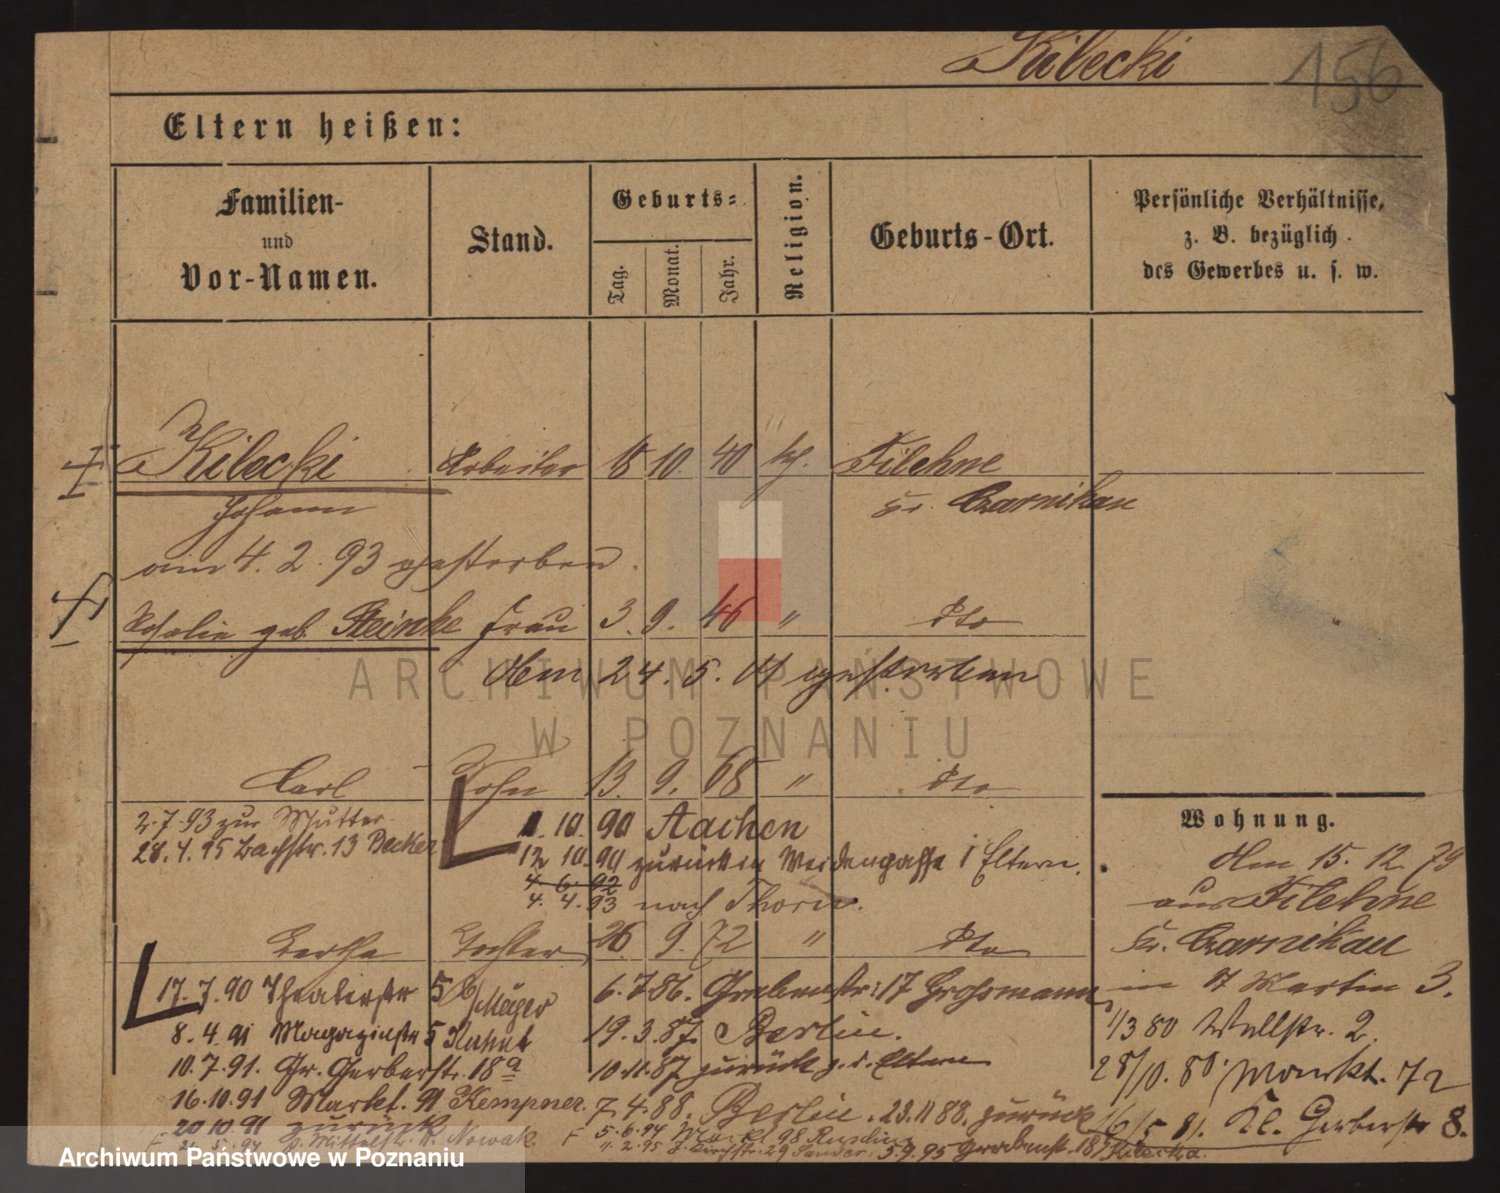 Kilecki
156
Eltern heißen:
Familien- und Vor-Namen.
Stand.
Geburts-
Tag.
Monat.
Jahr.
Religion.
Geburts-Ort.
Persönliche Verhältnisse,
z. B. bezüglich
des Gewerbes u. s. w.
Kilecki Arbeiter 18 10. 40 kth. Filehne
Johann Kr. Czarnikau
am 4. 2. 93 gestorben.
Rosalie geb. Steinke Frau 3. 9. 46 " dto
den 24. 5. 01 gestorben
Carl Sohn 13. 9. 68 " dto
2.7.93 zur Mutter
28.4.95 Bachstr. 13 Becker
1. 10. 90 Aachen
12 10. 90 zurück in Weidengasse 1 Eltern.
4. 6. 92
4. 4. 93 nach Thorn.
Bertha Tochter 26. 9. 72 " dto
17. 7. 90 Theaterstr 5
8. 4. 91 Magazinstr 5
10.7.91. Gr. Gerberstr. 18a
16.10.91 Markt. 91 Kempner.
20.10.91 zurück
Mittelstr. Nowak
6. 7. 86. Grabenstr: 17 Grossmann
19. 3. 87. Berlin.
10.11.87 zurück z. d. Eltern
7. 4. 88. Berlin. 23.11 88. zurück
5.6.94 Markt 98
5.9.95 Grabenstr. 18
Wohnung.
Den 15. 12. 79
aus Filehne
Kr. Czarnikau
in St Martin 3.
1/3 80 Wallstr. 2.
28/10. 80. Markt. 72
16/5 81. Kl. Gerberstr 8.
ARCHIWUM PAŃSTWOWE
W POZNANIU
Archiwum Państwowe w Poznaniu